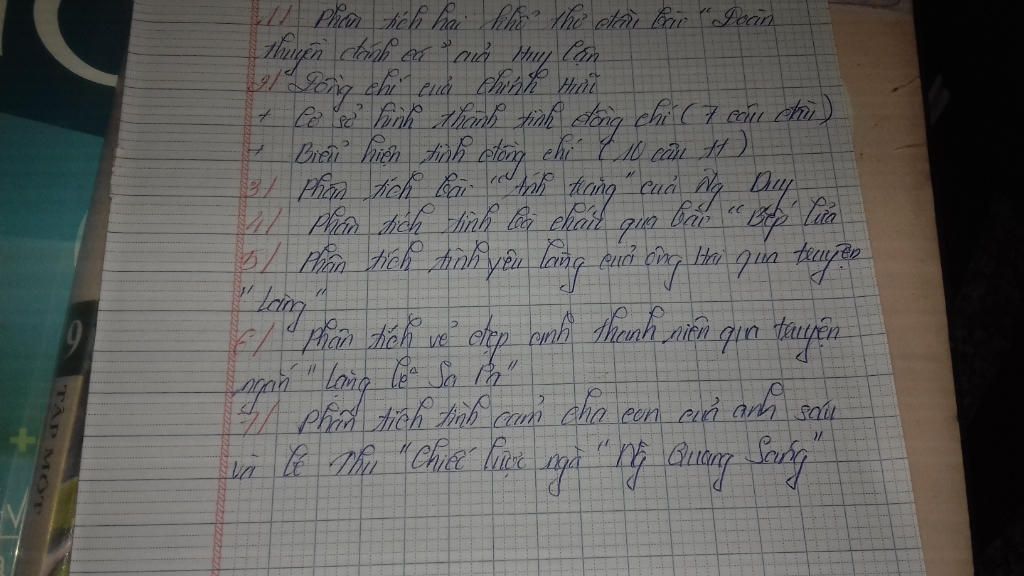 1/ Phân tích hai khổ thơ đầu bài "Đoàn
thuyền đánh cá" của Huy Cận
2/ Đồng chí của Chính Hữu
+ Cơ sở hình thành tình đồng chí (7 câu đầu)
+ Biểu hiện tình đồng chí (10 câu tt)
3/ Phân tích bài "Ánh trăng" của Ng Duy
4/ Phân tích tình bà cháu qua bài "Bếp lửa
5/ Phân tích tình yêu làng của ông Hai qua truyện
"Làng"
6/ Phân tích vẻ đẹp anh thanh niên qua truyện
ngắn "Lặng lẽ Sa Pa"
7/ Phân tích tình cảm cha con của anh sáu
và bé Thu "Chiếc lược ngà" Ng Quang Sáng"
9
TẬP MỘT